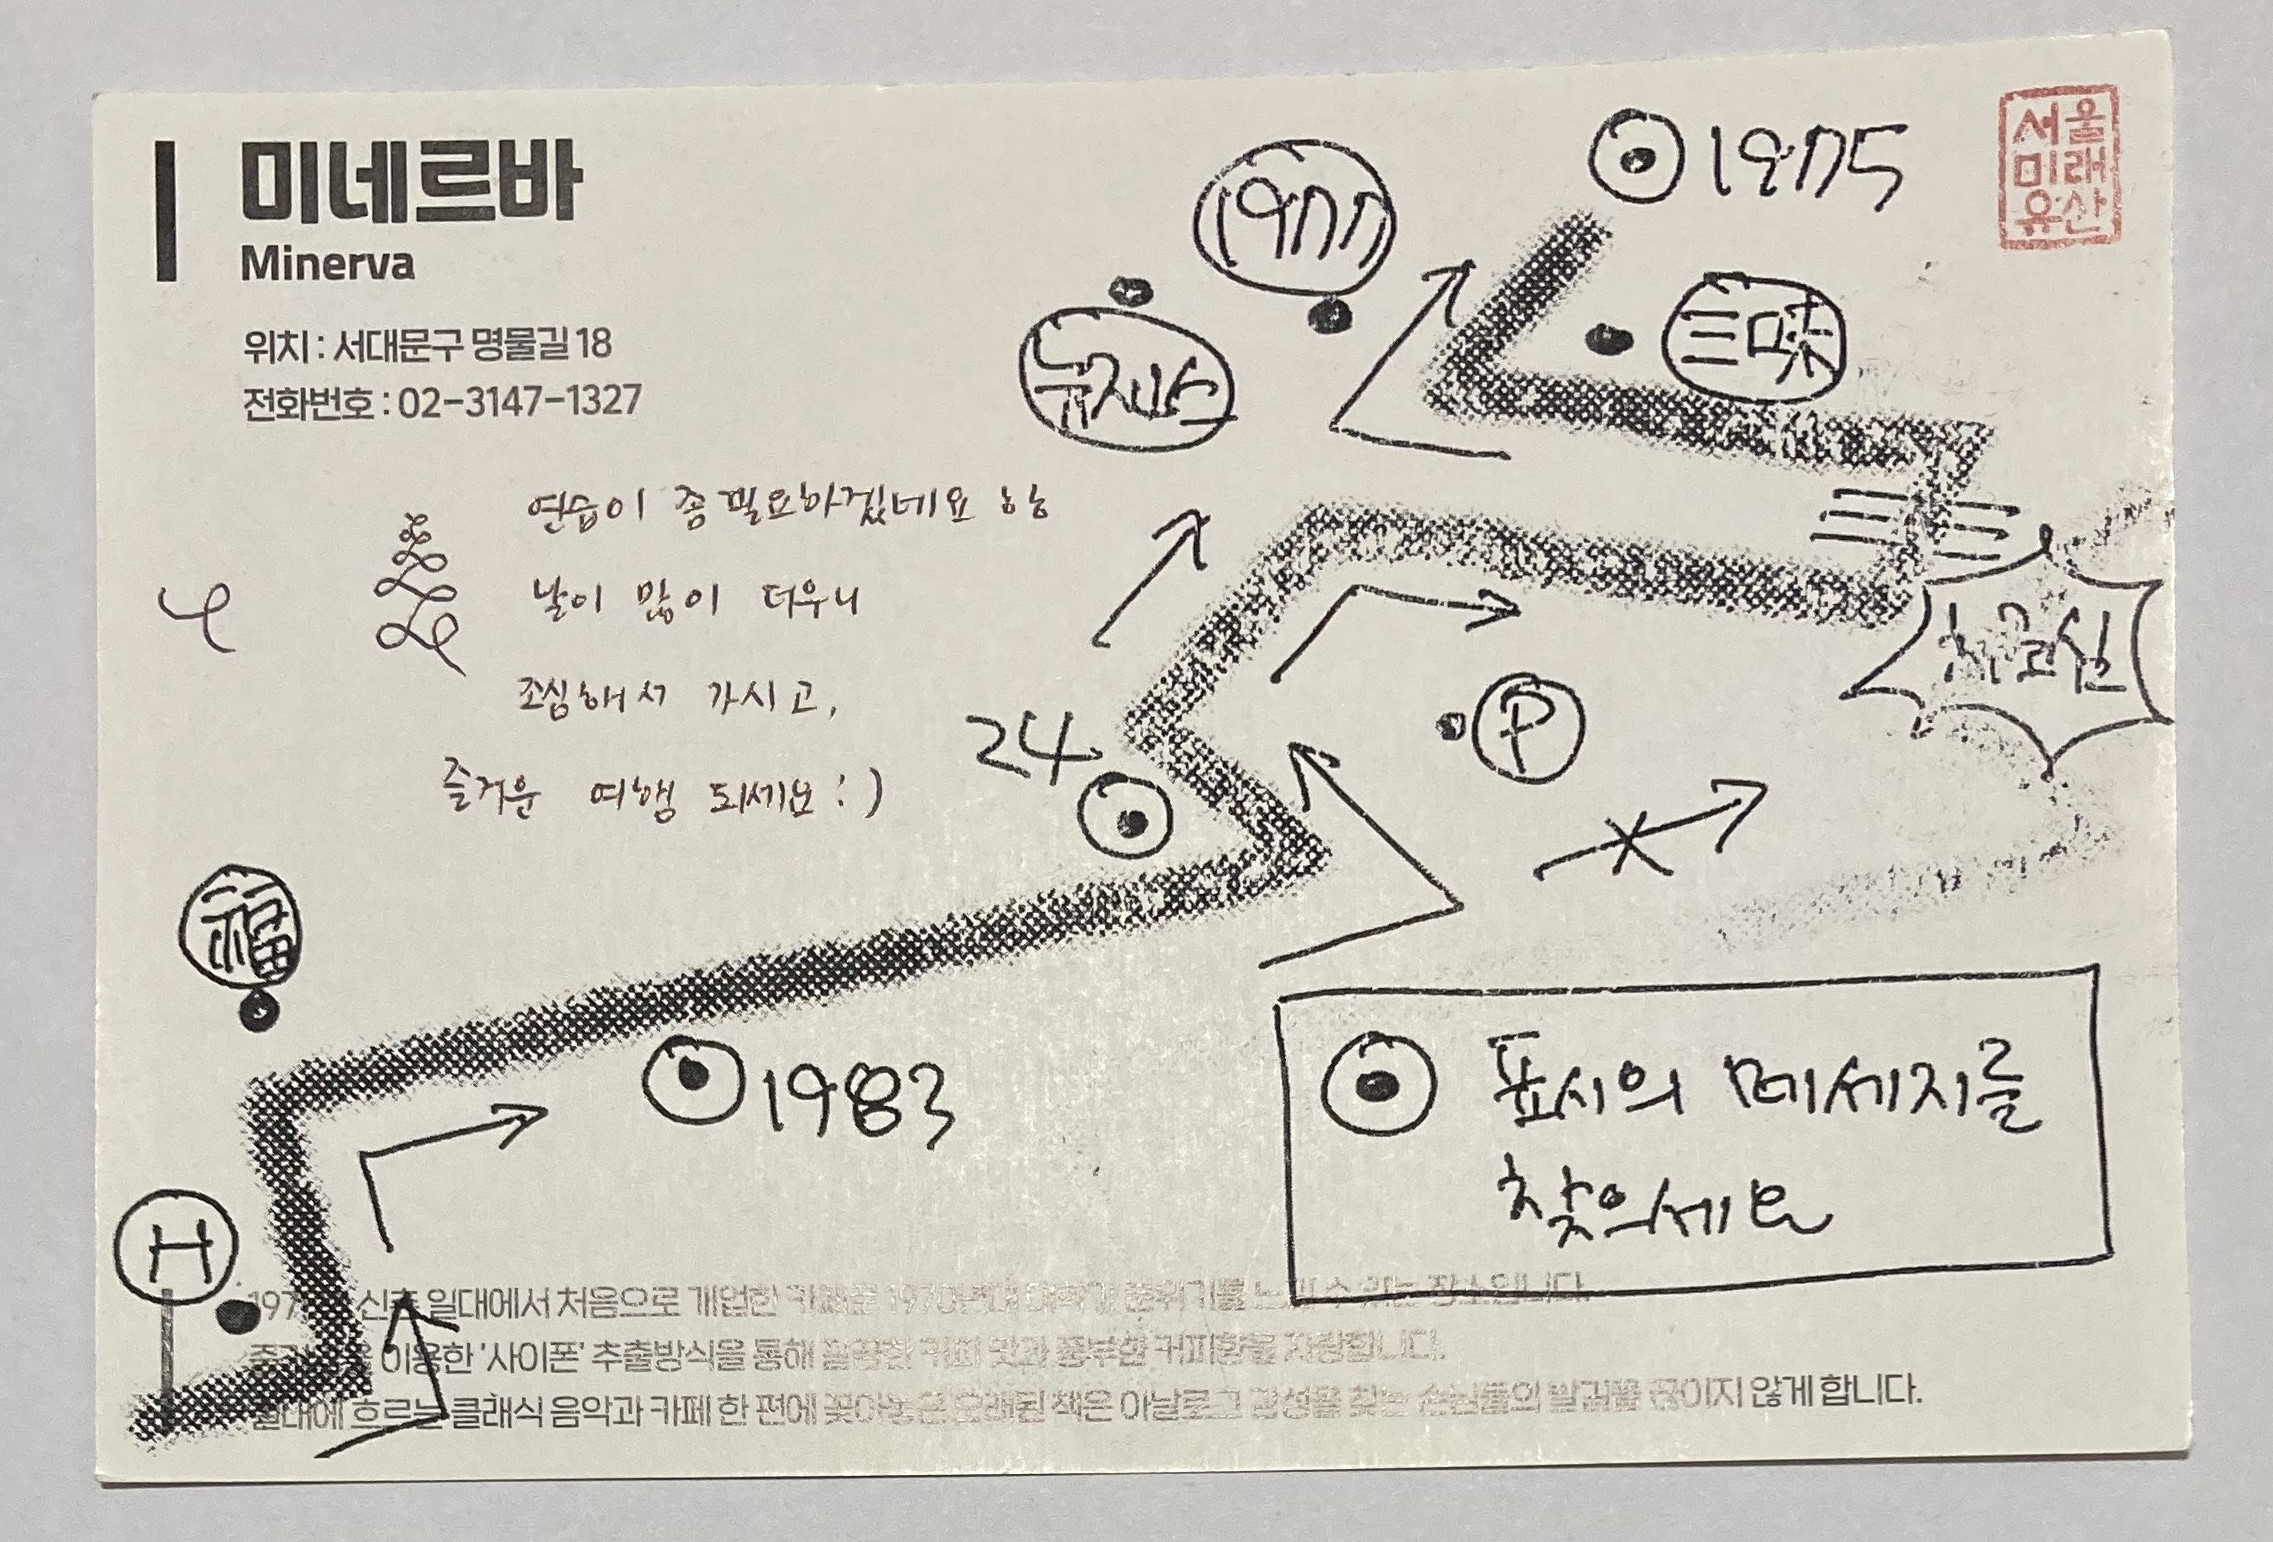 미네르바
Minerva
위치 : 서대문구 명물길 18
전화번호 : 02-3147-1327
서울
미래
유산
1975
1977
三味
뉴지스
연습이 좀 필요하겠네요 하하
날이 많이 더우니
조심해서 가시고,
즐거운 여행 되세요 : )
24
P
福
1983
H
표시의 메세지를
찾으세요
신촌 일대에서 처음으로 개업한 카페로 1970년대 대학가 분위기를 느낄 수 있는 장소입니다.
이용한 '사이폰' 추출방식을 통해 깔끔한 커피 맛과 풍부한 커피향을 자랑합니다.
흐르는 클래식 음악과 카페 한 편에 꽂아놓은 오래된 책은 아날로그 감성을 찾는 손님들의 발길을 끊이지 않게 합니다.